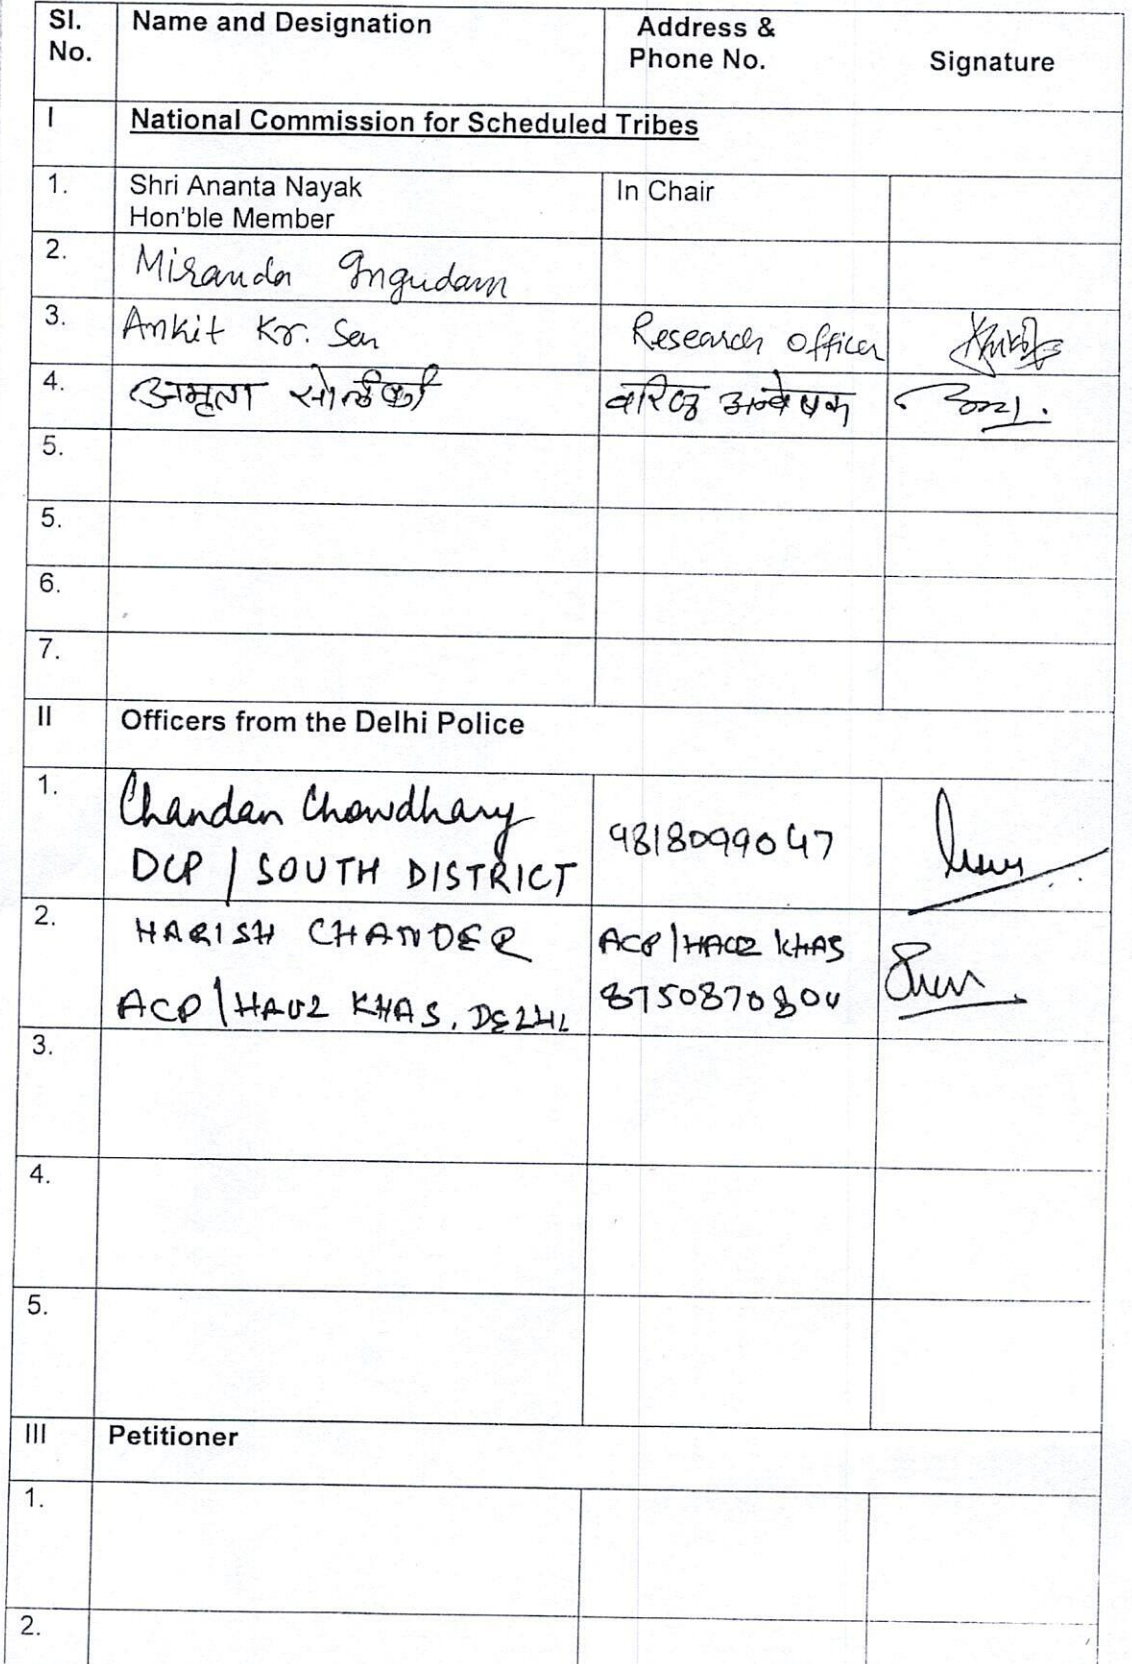 Sl. No. Name and Designation Address & Phone No. Signature
I National Commission for Scheduled Tribes
1. Shri Ananta Nayak In Chair
Hon'ble Member
2. Miranda Ingudam
3. Ankit Kr. Sen Research Officer
4. अमृता सोलंकी वरिष्ठ अन्वेषक
5.
5.
6.
7.
II Officers from the Delhi Police
1. Chandan Chowdhary 9818099047
DCP / SOUTH DISTRICT
2. HARISH CHANDER ACP / HAUZ KHAS
ACP / HAUZ KHAS, DELHI
3.
4.
5.
III Petitioner
1.
2.